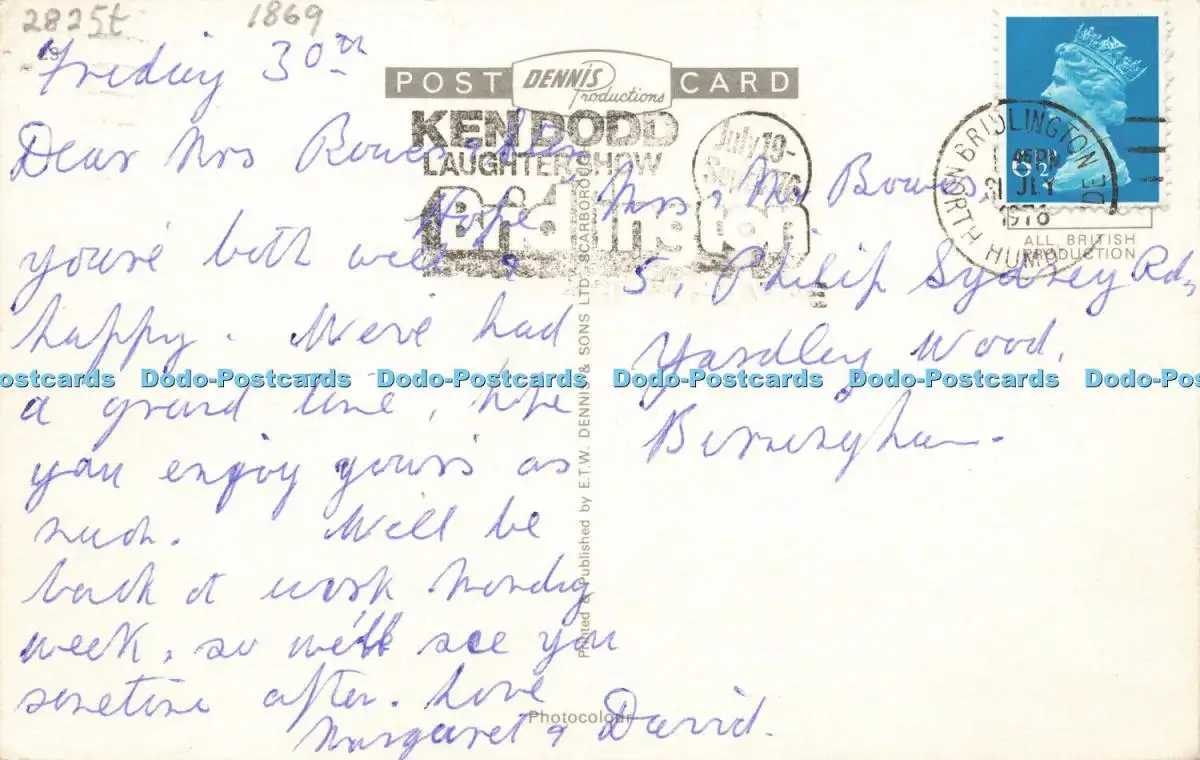 2825t 1869
Friday 30th
Dear Mrs Bowes
Hope
you're both well &
happy. We've had
a grand time, hope
you enjoy yours as
much. Will be
back at work Monday
week, so we'll see you
sometime after. Love
Margaret & David.
POST CARD
DENNIS
Productions
KEN DODD
LAUGHTER SHOW
Bridlington
July 19-
BRIDLINGTON
NORTH HUMBERSIDE
45PM
31 JLY
1976
6½
ALL BRITISH
PRODUCTION
Mrs, Mr Bowes,
5, Philip Sydney Rd,
Yardley Wood,
Birmingham.
Printed & Published by E.T.W. DENNIS & SONS LTD., SCARBOROUGH
Photocolour
Postcards Dodo-Postcards Dodo-Postcards Dodo-Postcards Dodo-Postcards Dodo-Post